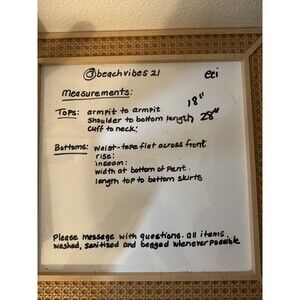 @beachvibes21
Measurements:
Tops: armpit to armpit 18"
shoulder to bottom length 28"
cuff to neck:
Bottoms: waist-tape flat across front
rise:
inseam:
width at bottom of pant.
length top to bottom skirts
Please message with questions. all items
washed, sanitized and bagged whenever possible